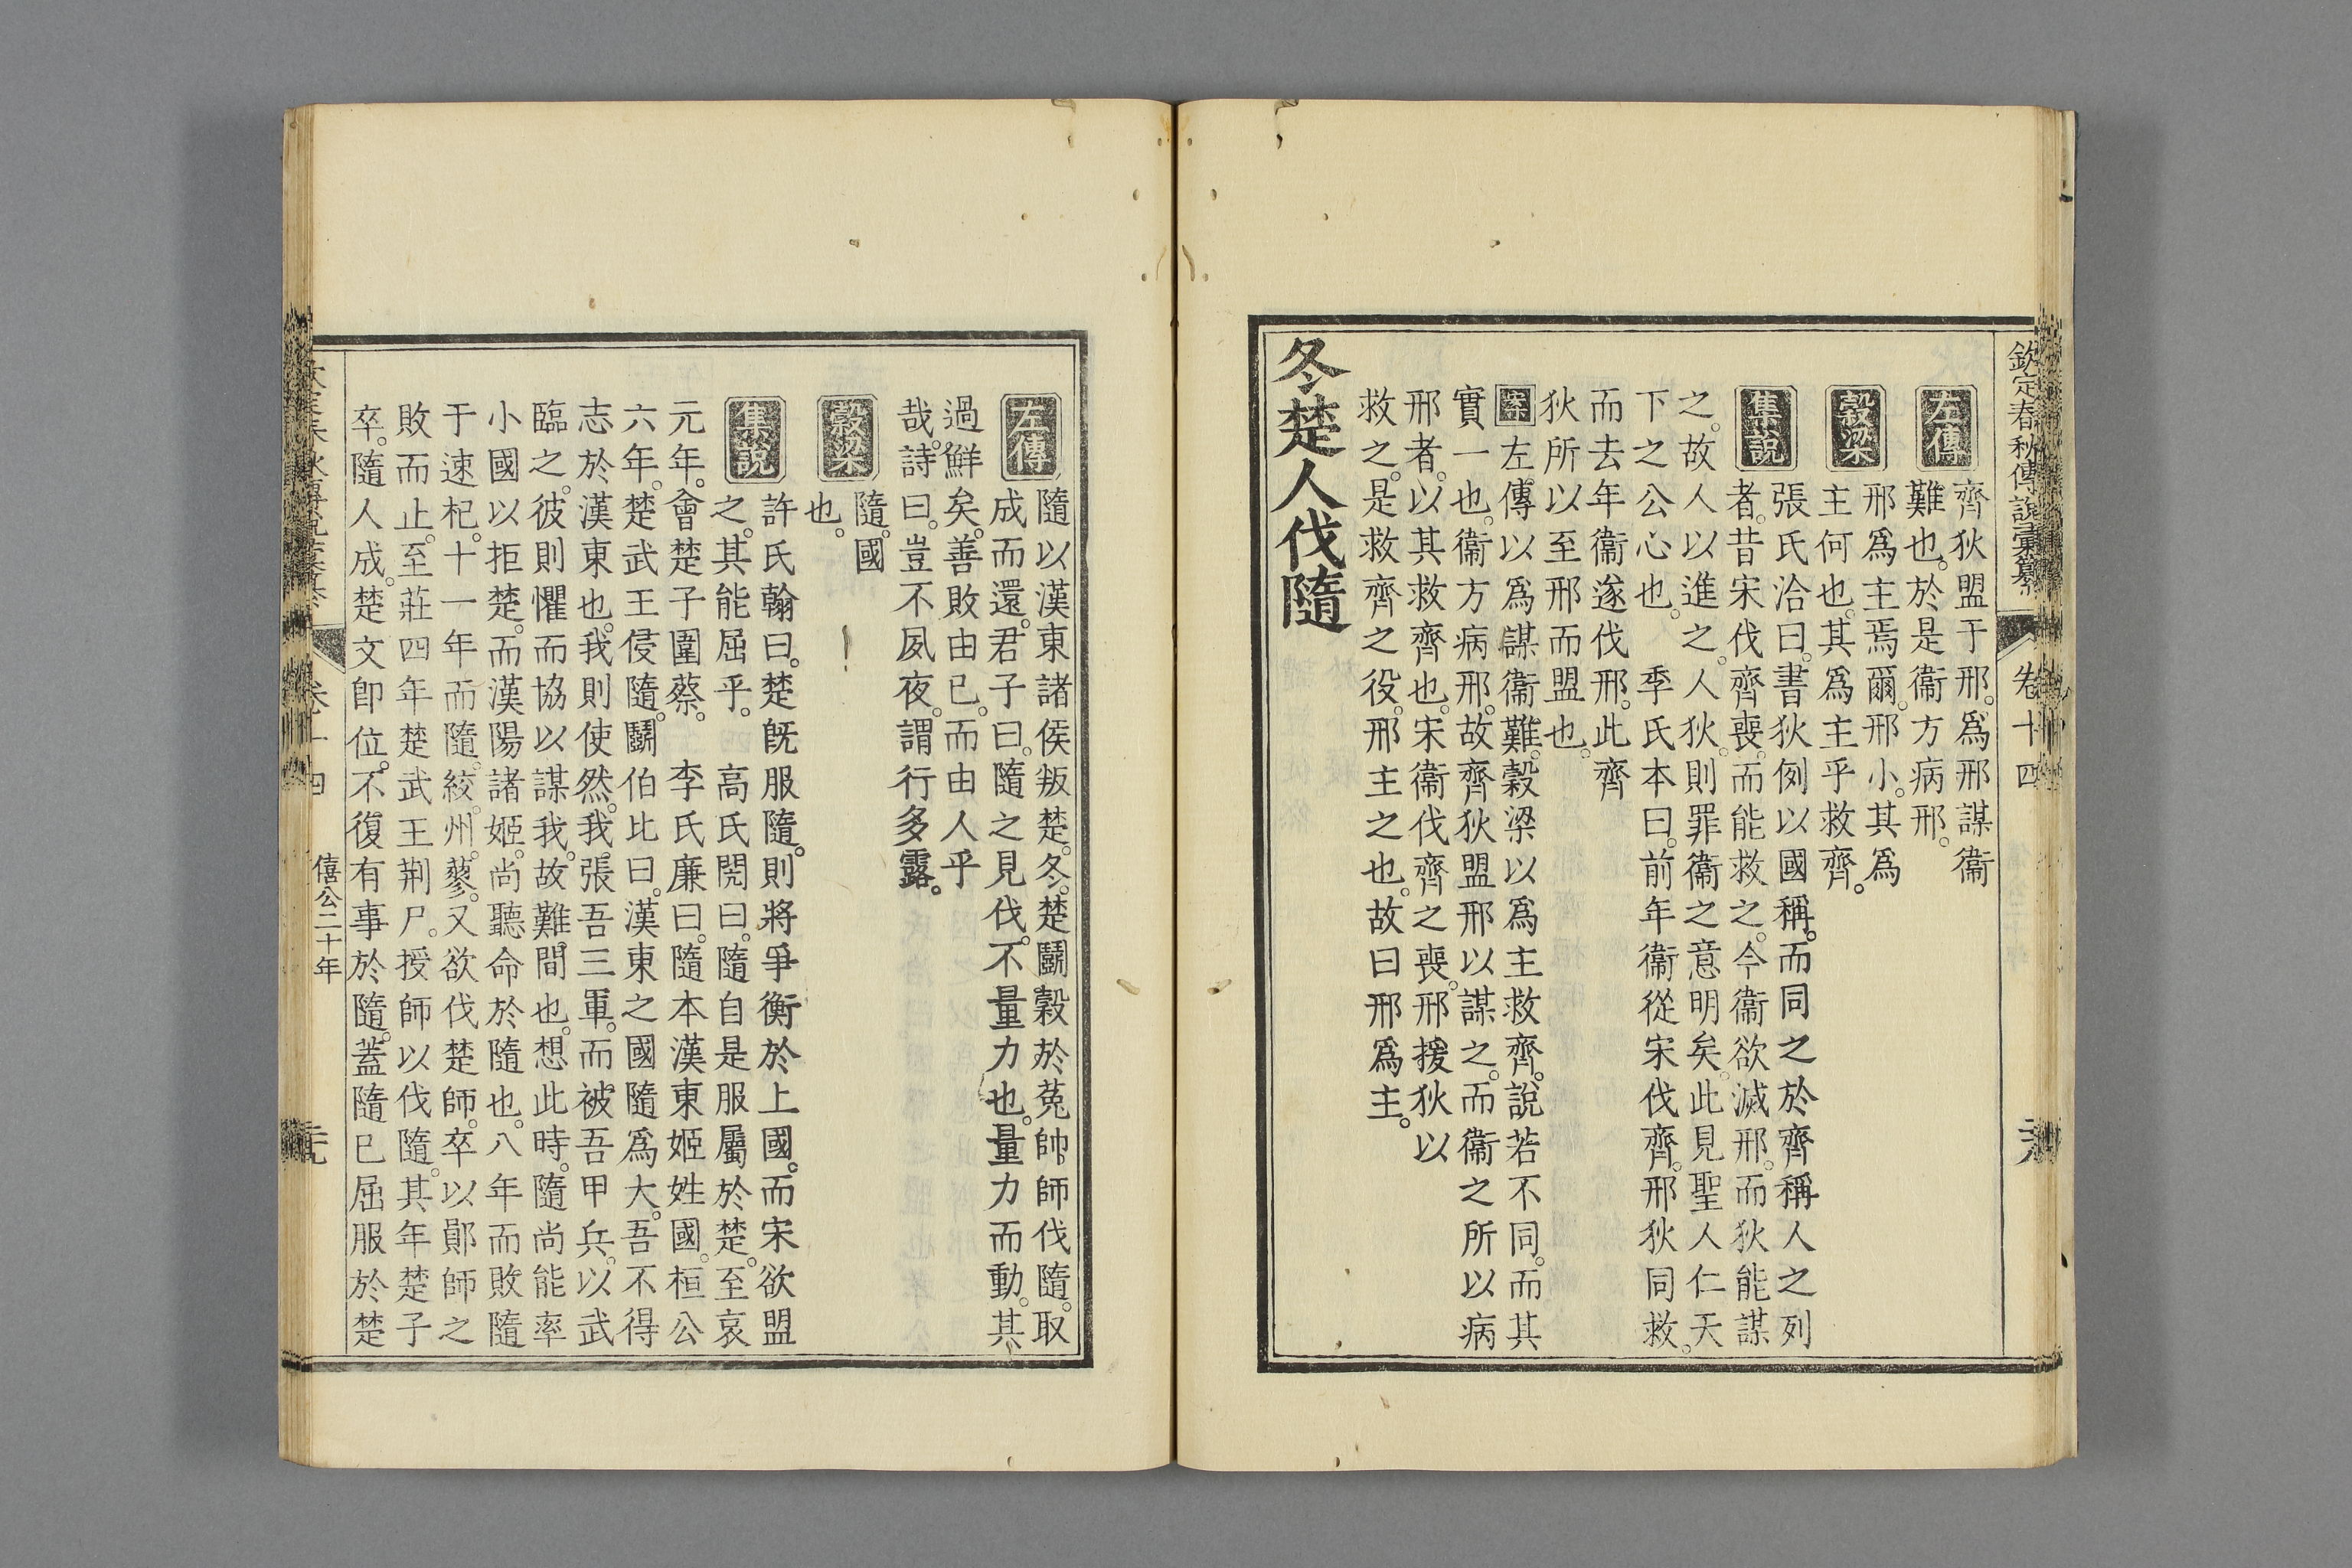 欽定春秋傳說彙纂 卷十四
左傳 齊狄盟于邢。爲邢謀衞
難也。於是衞方病邢。
穀梁 邢爲主焉爾。邢小。其爲
主何也。其爲主乎救齊。
集說 張氏洽曰。書狄例以國稱。而同之於齊稱人之列
者。昔宋伐齊喪。而能救之。今衞欲滅邢。而狄能謀
之。故人以進之。人狄。則罪衞之意明矣。此見聖人仁天
下之公心也。 季氏本曰。前年衞從宋伐齊。邢狄同救。
而去年衞遂伐邢。此齊
狄所以至邢而盟也。
案 左傳以爲謀衞難。穀梁以爲主救齊。說若不同。而其
實一也。衞方病邢。故齊狄盟邢以謀之。而衞之所以病
邢者。以其救齊也。宋衞伐齊之喪。邢援狄以
救之。是救齊之役。邢主之也。故曰邢爲主。
冬楚人伐隨
左傳 隨以漢東諸侯叛楚。冬。楚鬭穀於菟帥師伐隨。取
成而還。君子曰。隨之見伐。不量力也。量力而動。其
過鮮矣。善敗由已。而由人乎
哉。詩曰。豈不夙夜。謂行多露。
穀梁 隨。國
也。
集說 許氏翰曰。楚旣服隨。則將爭衡於上國。而宋欲盟
之。其能屈乎。 高氏閌曰。隨自是服屬於楚。至哀
元年。會楚子圍蔡。 李氏廉曰。隨本漢東姬姓國。桓公
六年。楚武王侵隨。鬭伯比曰。漢東之國隨爲大。吾不得
志於漢東也。我則使然。我張吾三軍。而被吾甲兵。以武
臨之。彼則懼而協以謀我。故難間也。想此時。隨尚能率
小國以拒楚。而漢陽諸姬。尚聽命於隨也。八年而敗隨
于速杞。十一年而隨。絞。州。蓼。又欲伐楚師。卒以鄖師之
敗而止。至莊四年楚武王荆尸。授師以伐隨。其年楚子
卒。隨人成。楚文卽位。不復有事於隨。蓋隨已屈服於楚
卷十四 僖公二十年